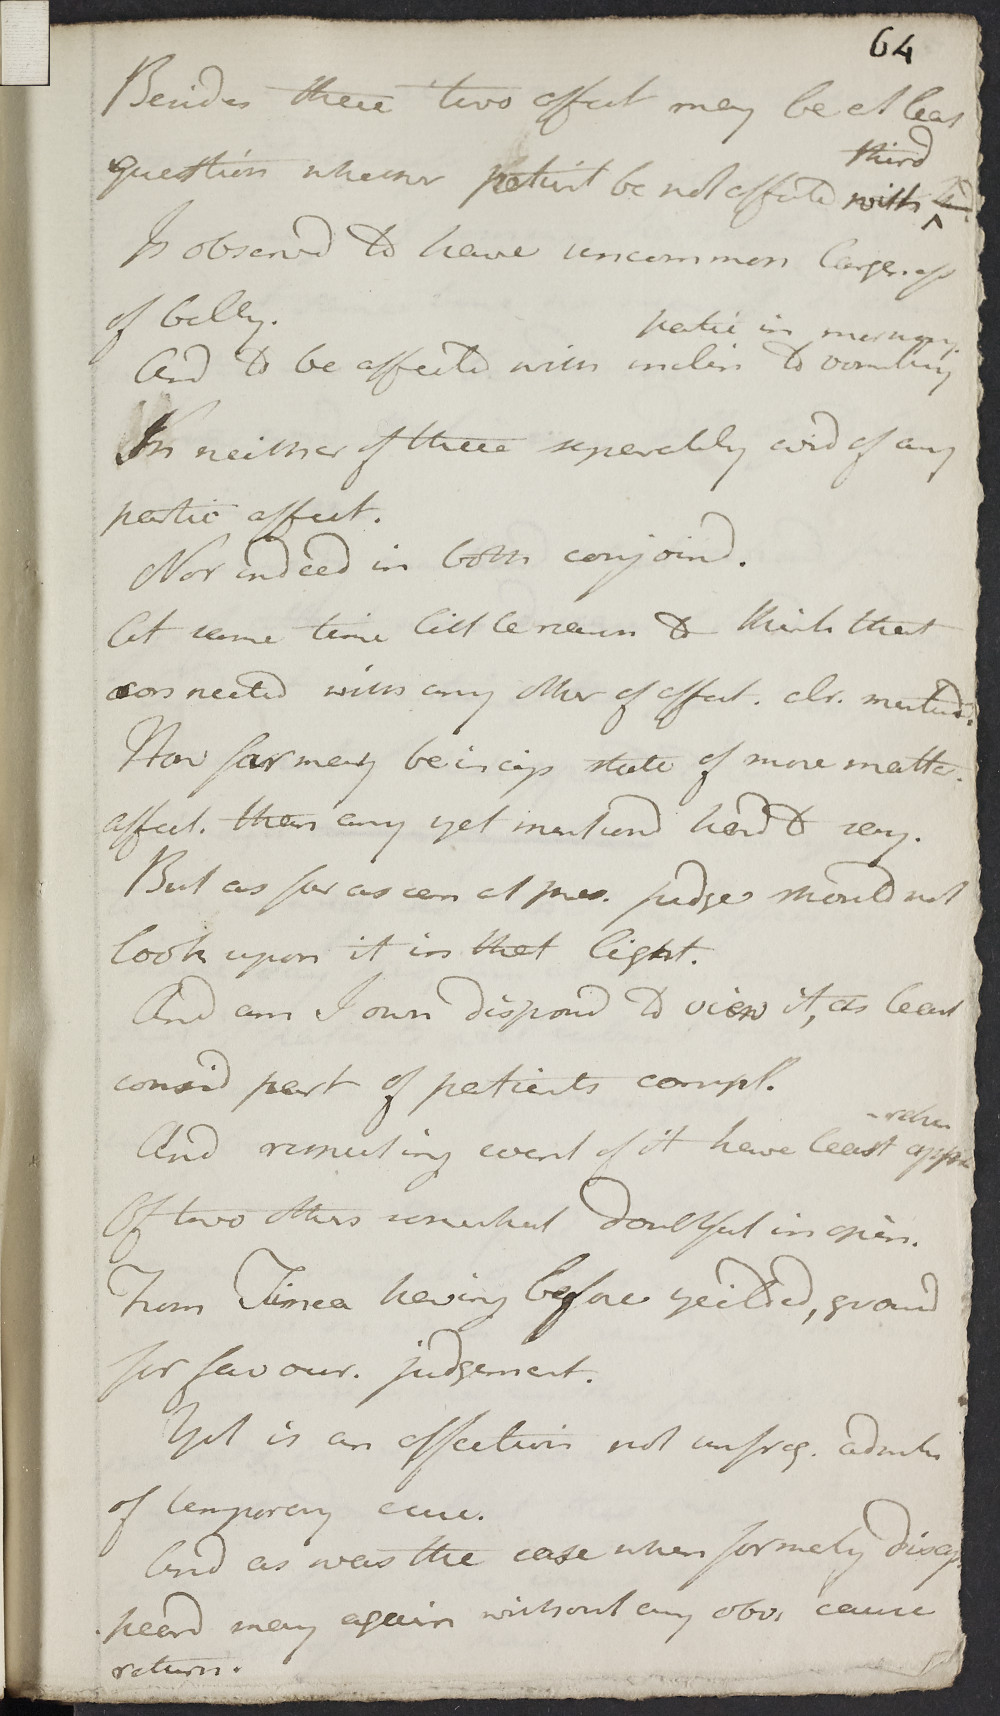 64
Besides these two affect may be at least
third
question whether patient be not affected with
Is observed to have uncommon largeness
of belly.
partic in morning.
And to be affected with inclin to vomiting
In neither of these seperately evid of any
partic affect.
Nor indeed in both conjoind.
At same time little reason to think that
connected with any other of affect. alr. mentiond.
How far may be incip state of more matter.
affect. than any yet mentiond hard to say.
But as far as can at pres. judge should not
look upon it in that light.
And am I own disposd to view it, as least
consid part of patients compl.
And respecting event of it have least appre
-rehen
Of two others somewhat doubtful in opin.
From Tinea having before yeilded, ground
for favour. judgement.
Yet is an affection not unfreq. admits
of temporary cure.
And as was the case when formerly disap
peard may again without any obv. cause
return.